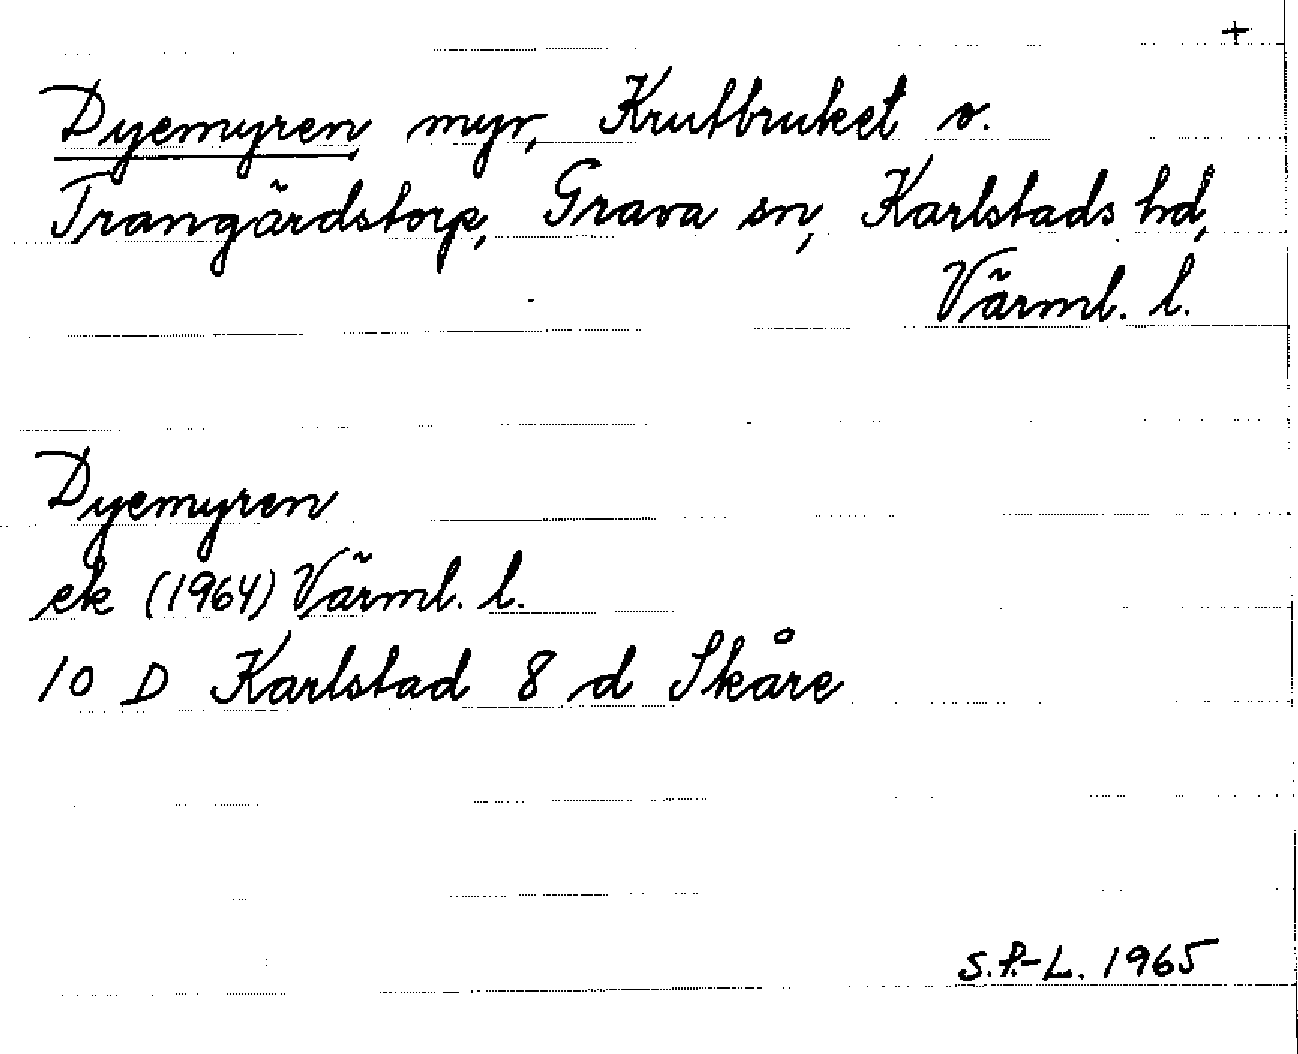 +
Dyemyren myr, Krutbruket o.
Trangärdstorp, Grava sn, Karlstads hd,
Värml. l.
Dyemyren
ek (1964) Värml. l.
10 D Karlstad 8 d Skåre
S.P.-L. 1965